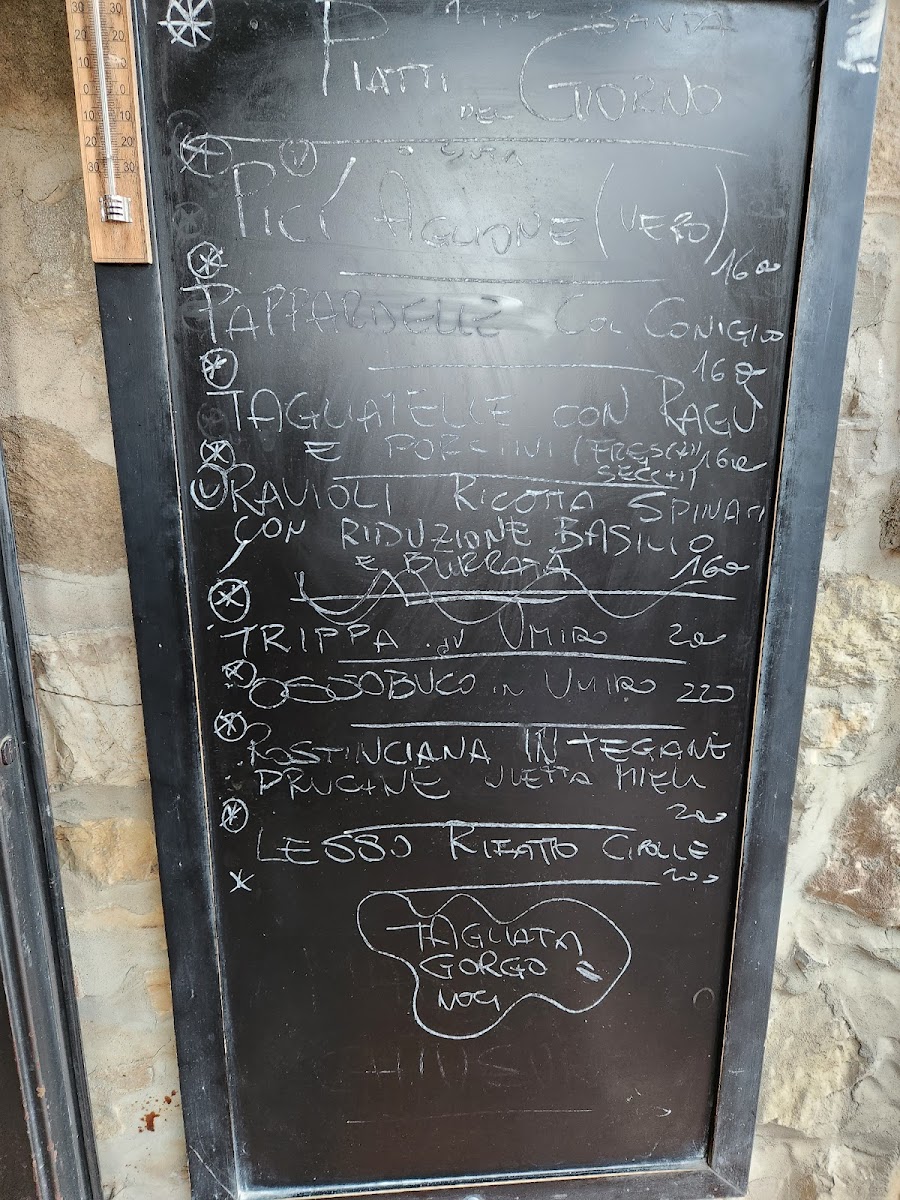 30 30
20 20
10 10
0 0
10 10
20 20
30 30
PIATTI DEL GIORNO
V
PICI AGLIONE (VERO)
16
PAPPARDELLE COL CONIGLIO
16
TAGLIATELLE CON RAGÙ
E PORCINI (FRESCHI
SECCHI) 16
V RAVIOLI RICOTTA SPINACI
CON RIDUZIONE BASILICO
E BURRATA 16
TRIPPA IN UMIDO 20
OSSOBUCO IN UMIDO 22
ROSTINCIANA IN TEGAME
PRUGNE UVETTA MIELE
20
LESSO RIFATTO CIPOLLE
20
TAGLIATA
GORGO E
NOCI